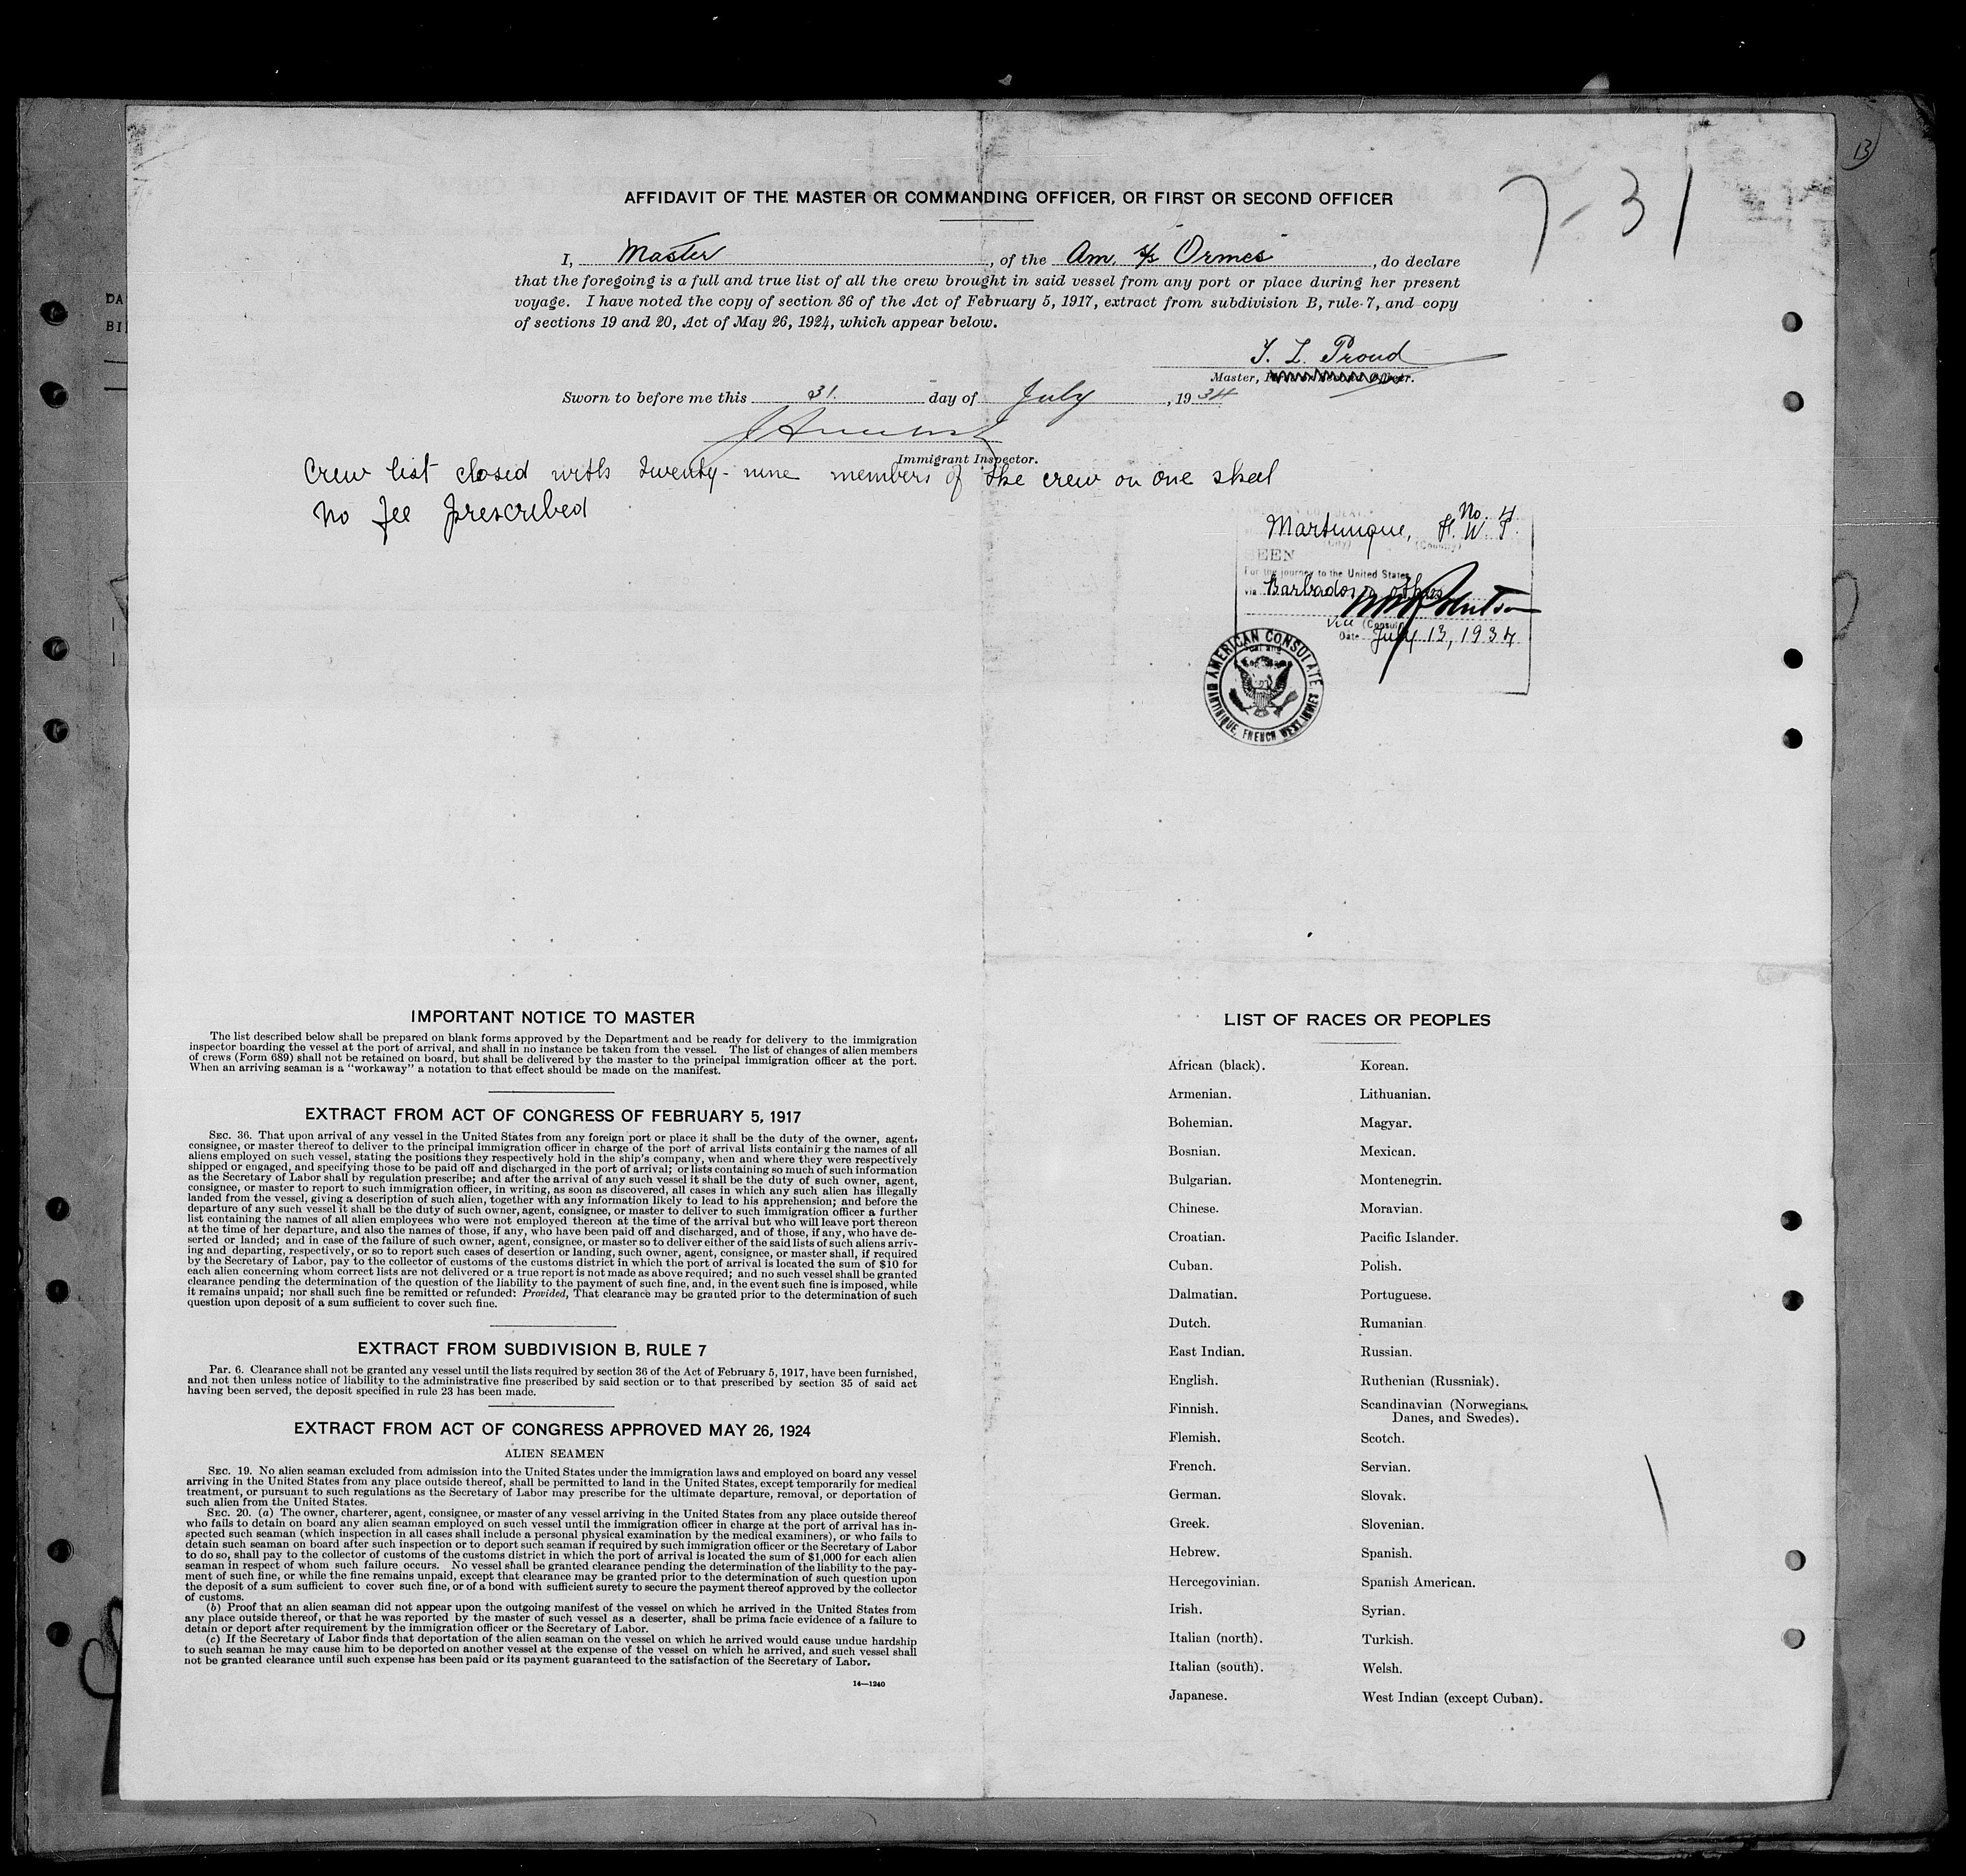 13
AFFIDAVIT OF THE MASTER OR COMMANDING OFFICER, OR FIRST OR SECOND OFFICER
7-31
I, Master, of the Am. s/s Ormes, do declare
that the foregoing is a full and true list of all the crew brought in said vessel from any port or place during her present
voyage. I have noted the copy of section 36 of the Act of February 5, 1917, extract from subdivision B, rule 7, and copy
of sections 19 and 20, Act of May 26, 1924, which appear below.
T. L. Proud
Master,
Sworn to before me this 31. day of July, 1934
Immigrant Inspector.
Crew list closed with twenty-nine members of the crew on one sheet
No fee prescribed
No. 4
Martinique, F. W. I.
(City) (Country)
SEEN
For the journey to the United States
via Barbados & others
Vice (Consul)
Date July 13, 1934
AMERICAN CONSULATE
MARTINIQUE, FRENCH WEST INDIES
IMPORTANT NOTICE TO MASTER
The list described below shall be prepared on blank forms approved by the Department and be ready for delivery to the immigration
inspector boarding the vessel at the port of arrival, and shall in no instance be taken from the vessel. The list of changes of alien members
of crews (Form 689) shall not be retained on board, but shall be delivered by the master to the principal immigration officer at the port.
When an arriving seaman is a "workaway" a notation to that effect should be made on the manifest.
EXTRACT FROM ACT OF CONGRESS OF FEBRUARY 5, 1917
SEC. 36. That upon arrival of any vessel in the United States from any foreign port or place it shall be the duty of the owner, agent,
consignee, or master thereof to deliver to the principal immigration officer in charge of the port of arrival lists containing the names of all
aliens employed on such vessel, stating the positions they respectively hold in the ship's company, when and where they were respectively
shipped or engaged, and specifying those to be paid off and discharged in the port of arrival; or lists containing so much of such information
as the Secretary of Labor shall by regulation prescribe; and after the arrival of any such vessel it shall be the duty of such owner, agent,
consignee, or master to report to such immigration officer, in writing, as soon as discovered, all cases in which any such alien has illegally
landed from the vessel, giving a description of such alien, together with any information likely to lead to his apprehension; and before the
departure of any such vessel it shall be the duty of such owner, agent, consignee, or master to deliver to such immigration officer a further
list containing the names of all alien employees who were not employed thereon at the time of the arrival but who will leave port thereon
at the time of her departure, and also the names of those, if any, who have been paid off and discharged, and of those, if any, who have de-
serted or landed; and in case of the failure of such owner, agent, consignee, or master so to deliver either of the said lists of such aliens arriv-
ing and departing, respectively, or so to report such cases of desertion or landing, such owner, agent, consignee, or master shall, if required
by the Secretary of Labor, pay to the collector of customs of the customs district in which the port of arrival is located the sum of $10 for
each alien concerning whom correct lists are not delivered or a true report is not made as above required; and no such vessel shall be granted
clearance pending the determination of the question of the liability to the payment of such fine, and, in the event such fine is imposed, while
it remains unpaid; nor shall such fine be remitted or refunded: Provided, That clearance may be granted prior to the determination of such
question upon deposit of a sum sufficient to cover such fine.
EXTRACT FROM SUBDIVISION B, RULE 7
PAR. 6. Clearance shall not be granted any vessel until the lists required by section 36 of the Act of February 5, 1917, have been furnished,
and not then unless notice of liability to the administrative fine prescribed by said section or to that prescribed by section 35 of said act
having been served, the deposit specified in rule 23 has been made.
EXTRACT FROM ACT OF CONGRESS APPROVED MAY 26, 1924
ALIEN SEAMEN
SEC. 19. No alien seaman excluded from admission into the United States under the immigration laws and employed on board any vessel
arriving in the United States from any place outside thereof, shall be permitted to land in the United States, except temporarily for medical
treatment, or pursuant to such regulations as the Secretary of Labor may prescribe for the ultimate departure, removal, or deportation of
such alien from the United States.
SEC. 20. (a) The owner, charterer, agent, consignee, or master of any vessel arriving in the United States from any place outside thereof
who fails to detain on board any alien seaman employed on such vessel until the immigration officer in charge at the port of arrival has in-
spected such seaman (which inspection in all cases shall include a personal physical examination by the medical examiners), or who fails to
detain such seaman on board after such inspection or to deport such seaman if required by such immigration officer or the Secretary of Labor
to do so, shall pay to the collector of customs of the customs district in which the port of arrival is located the sum of $1,000 for each alien
seaman in respect of whom such failure occurs. No vessel shall be granted clearance pending the determination of the liability to the pay-
ment of such fine, or while the fine remains unpaid, except that clearance may be granted prior to the determination of such question upon
the deposit of a sum sufficient to cover such fine, or of a bond with sufficient surety to secure the payment thereof approved by the collector
of customs.
(b) Proof that an alien seaman did not appear upon the outgoing manifest of the vessel on which he arrived in the United States from
any place outside thereof, or that he was reported by the master of such vessel as a deserter, shall be prima facie evidence of a failure to
detain or deport after requirement by the immigration officer or the Secretary of Labor.
(c) If the Secretary of Labor finds that deportation of the alien seaman on the vessel on which he arrived would cause undue hardship
to such seaman he may cause him to be deported on another vessel at the expense of the vessel on which he arrived, and such vessel shall
not be granted clearance until such expense has been paid or its payment guaranteed to the satisfaction of the Secretary of Labor.
14—1240
LIST OF RACES OR PEOPLES
African (black). Korean.
Armenian. Lithuanian.
Bohemian. Magyar.
Bosnian. Mexican.
Bulgarian. Montenegrin.
Chinese. Moravian.
Croatian. Pacific Islander.
Cuban. Polish.
Dalmatian. Portuguese.
Dutch. Rumanian.
East Indian. Russian.
English. Ruthenian (Russniak).
Finnish. Scandinavian (Norwegians,
Danes, and Swedes).
Flemish. Scotch.
French. Servian.
German. Slovak.
Greek. Slovenian.
Hebrew. Spanish.
Hercegovinian. Spanish American.
Irish. Syrian.
Italian (north). Turkish.
Italian (south). Welsh.
Japanese. West Indian (except Cuban).